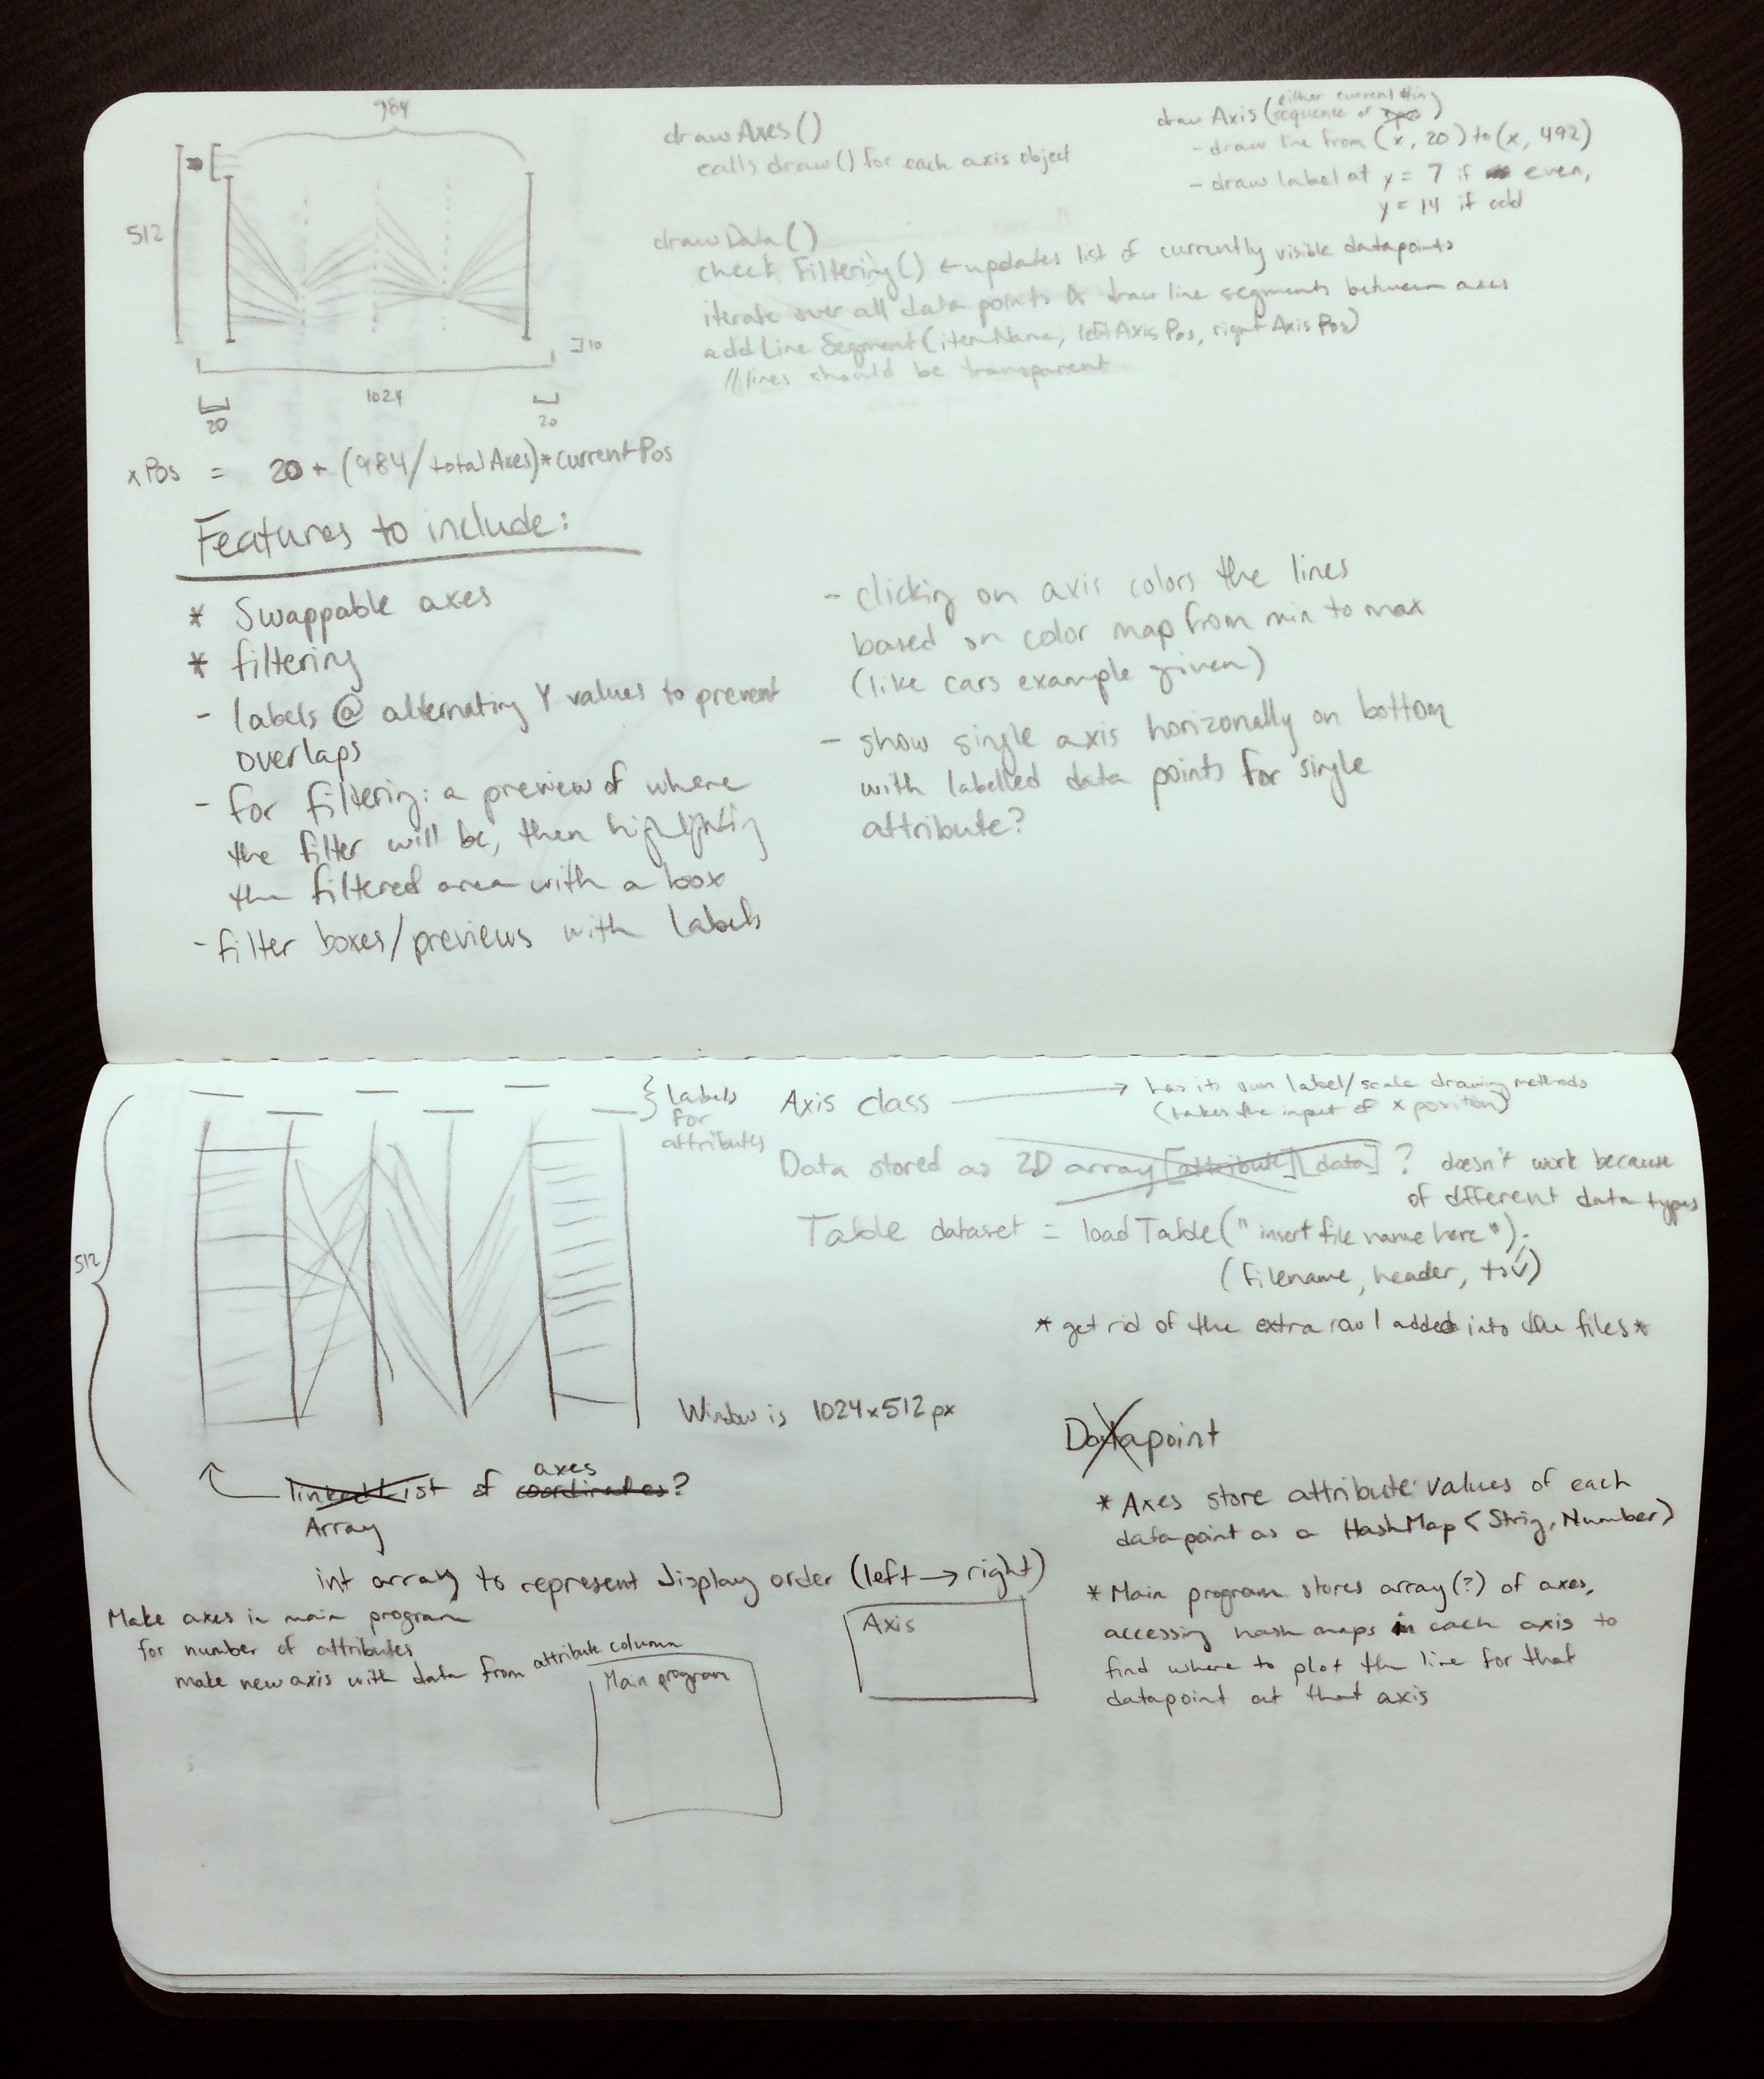 984
512
1024
20
20
10
xPos = 20 + (984/totalAxes)*currentPos
drawAxes()
calls draw() for each axis object
drawData()
check Filtering() ← updates list of currently visible datapoints
iterate over all data points & draw line segments between axes
addLineSegment(itemName, leftAxisPos, rightAxisPos)
//lines should be transparent
drawAxis(either current # in
sequence or xpos)
- draw line from (x, 20) to (x, 492)
- draw label at y = 7 if even,
y = 14 if odd
Features to include:
* Swappable axes
* filtering
- labels @ alternating Y values to prevent
overlaps
- for filtering: a preview of where
the filter will be, then highlighting
the filtered area with a box
- filter boxes/previews with labels
- clicking on axis colors the lines
based on color map from min to max
(like cars example given)
- show single axis horizonally on bottom
with labelled data points for single
attribute?
512
} labels
for
attributes
Axis class → has its own label/scale drawing methods
(takes the input of x position)
Data stored as 2D array [attribute][data] ? doesn't work because
of different data types
Table dataset = loadTable("insert file name here");
(filename, header, tsv)
* get rid of the extra row I added into the files *
Window is 1024x512 px
linked list of coordinates?
axes
Array
int array to represent display order (left → right)
Make axes in main program
for number of attributes
make new axis with data from attribute column
Main program
Axis
Datapoint
* Axes store attribute values of each
datapoint as a HashMap<String, Number>
* Main program stores array(?) of axes,
accessing hash maps in each axis to
find where to plot the line for that
datapoint at that axis